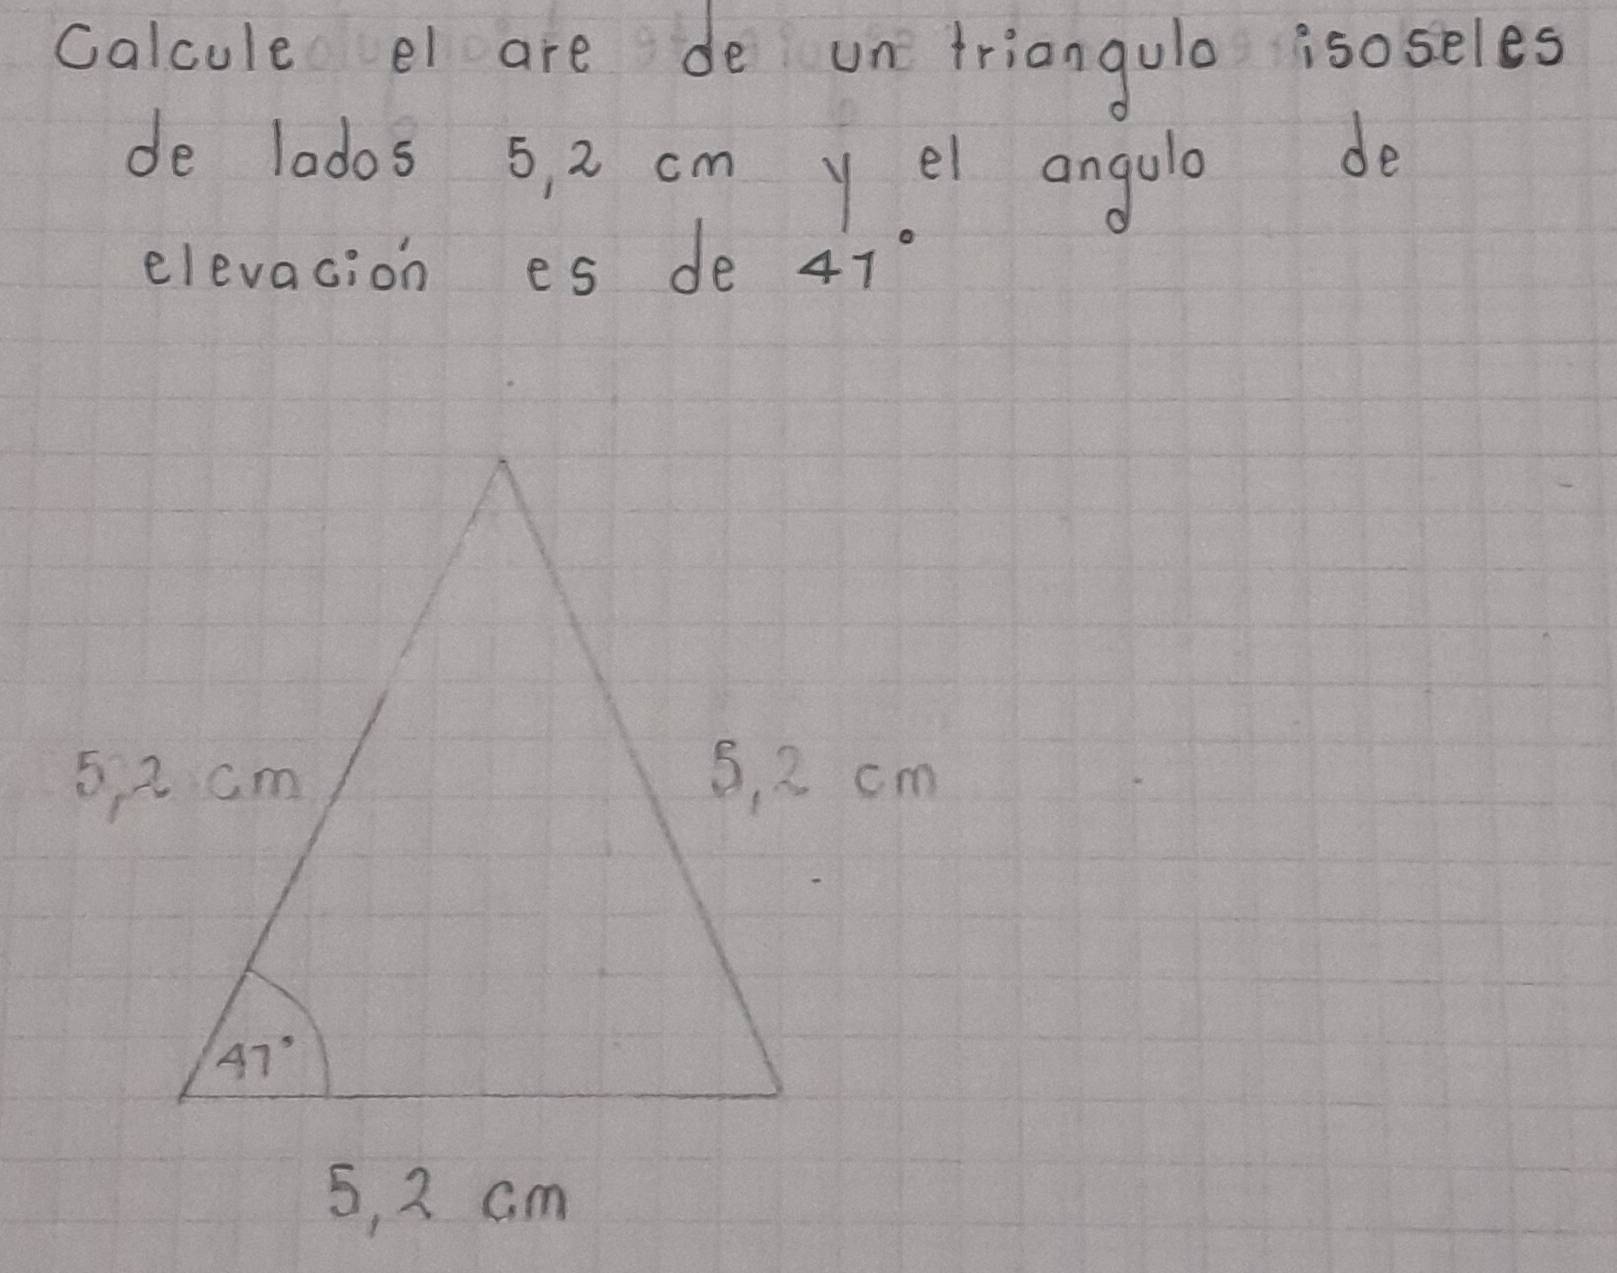 Calcule el are de un triangulo isoseles
de lados 5,2 cm y el angulo de
elevación es de 47°
5,2 cm
5,2 cm
47°
5,2 cm